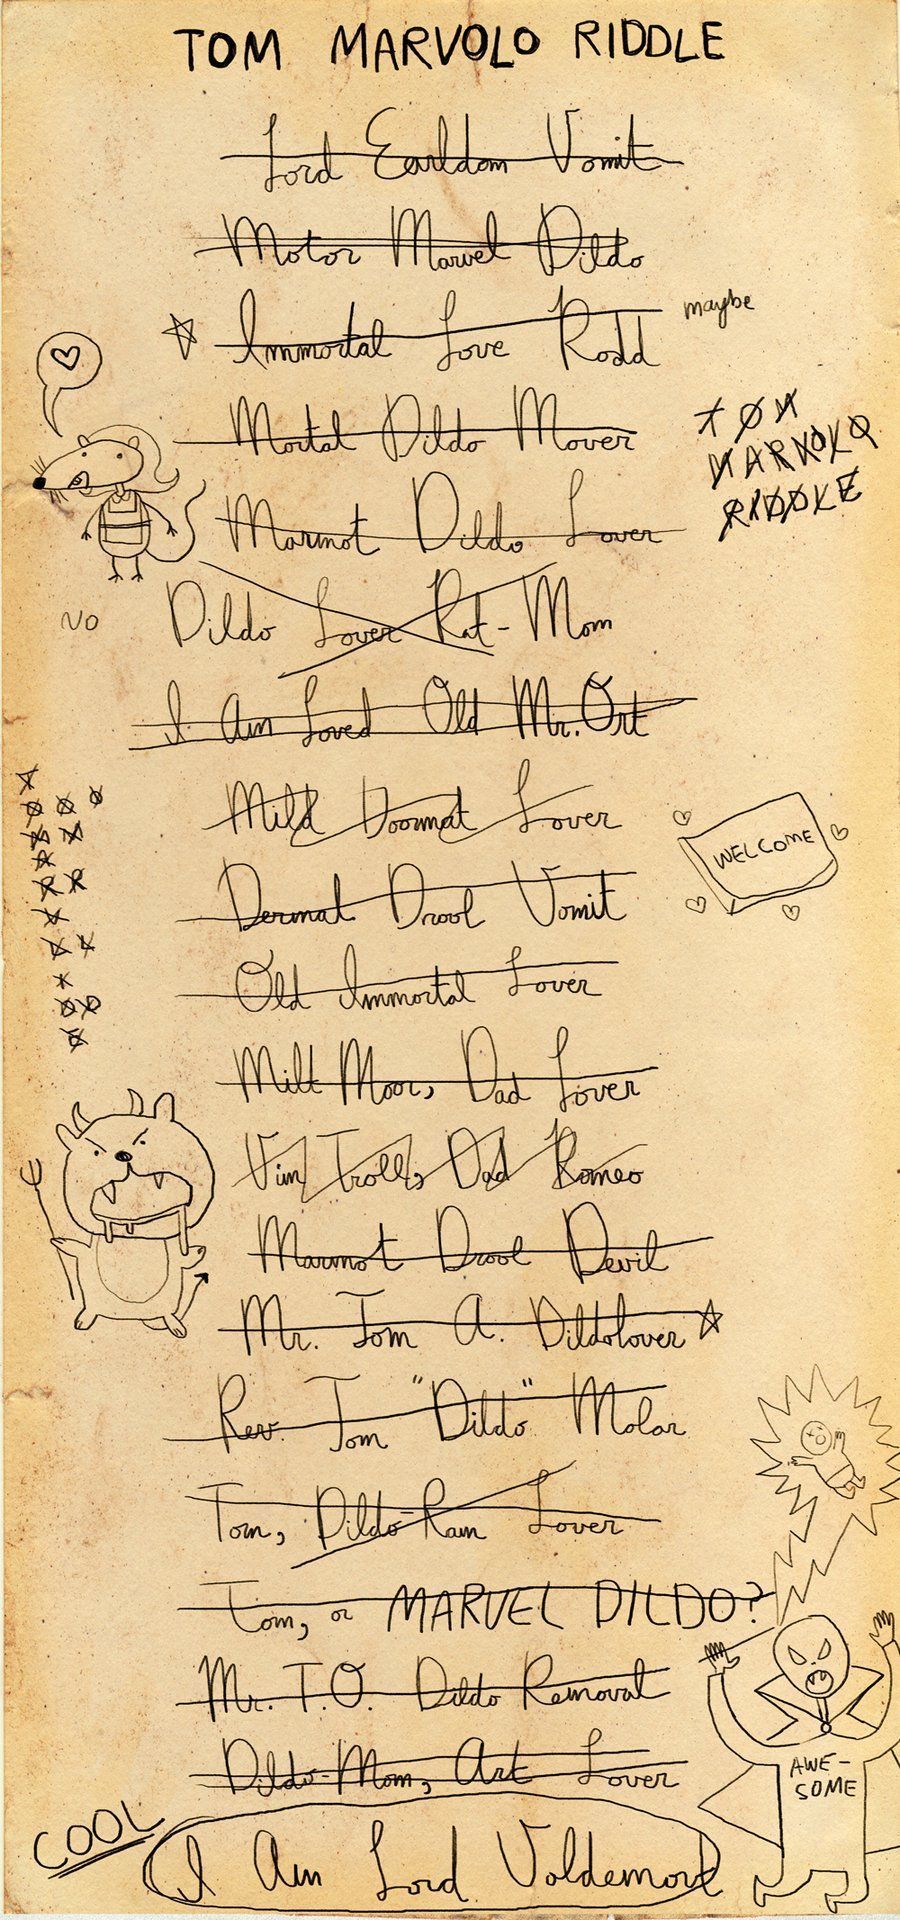 TOM MARVOLO RIDDLE
Lord Earldom Vomit
Motor Marvel Dildo
maybe
Immortal Love Rodd
Mortal Dildo Mover
TOM
MARVOLO
RIDDLE
Marmot Dildo Lover
NO
Dildo Lover Rat-Mom
I Am Loved Old Mr. Ort
Mild Doormat Lover
WELCOME
Dermat Drool Vomit
Old Immortal Lover
Milt Moor, Dad Lover
Vim Troll, Dad Romeo
Marmot Drool Devil
Mr. Tom A. Dildolover
Rev. Tom "Dildo" Molar
Tom, Dildo-Ram Lover
Tom, or MARVEL DILDO?
Mr. T.O. Dildo Removal
Dildo-Mom, Art Lover
AWE-
SOME
COOL
I Am Lord Voldemort